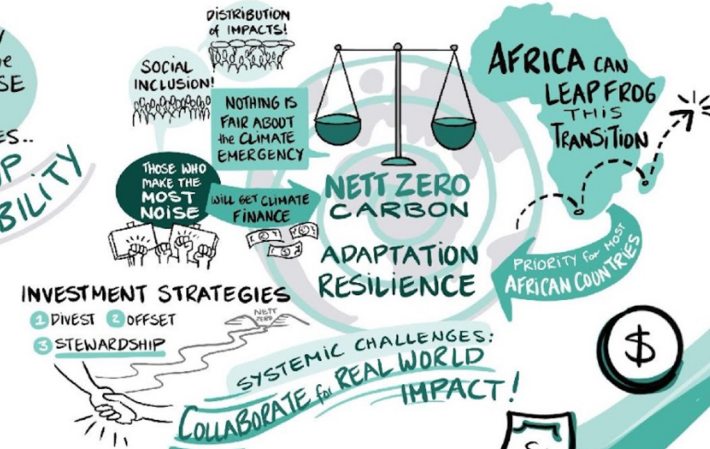 SE
ES..
UP
BILITY
DISTRIBUTION
of IMPACTS!
SOCIAL
INCLUSION!
NOTHING IS
FAIR ABOUT
the CLIMATE
EMERGENCY
THOSE WHO
MAKE THE
MOST
NOISE
WILL GET CLIMATE
FINANCE
NETT ZERO
CARBON
ADAPTATION
RESILIENCE
AFRICA CAN
LEAPFROG
THIS
TRANSITION
PRIORITY for MOST
AFRICAN COUNTRIES
INVESTMENT STRATEGIES
1 DIVEST 2 OFFSET
3 STEWARDSHIP
NETT
ZERO
SYSTEMIC CHALLENGES:
COLLABORATE for REAL WORLD
IMPACT!
$